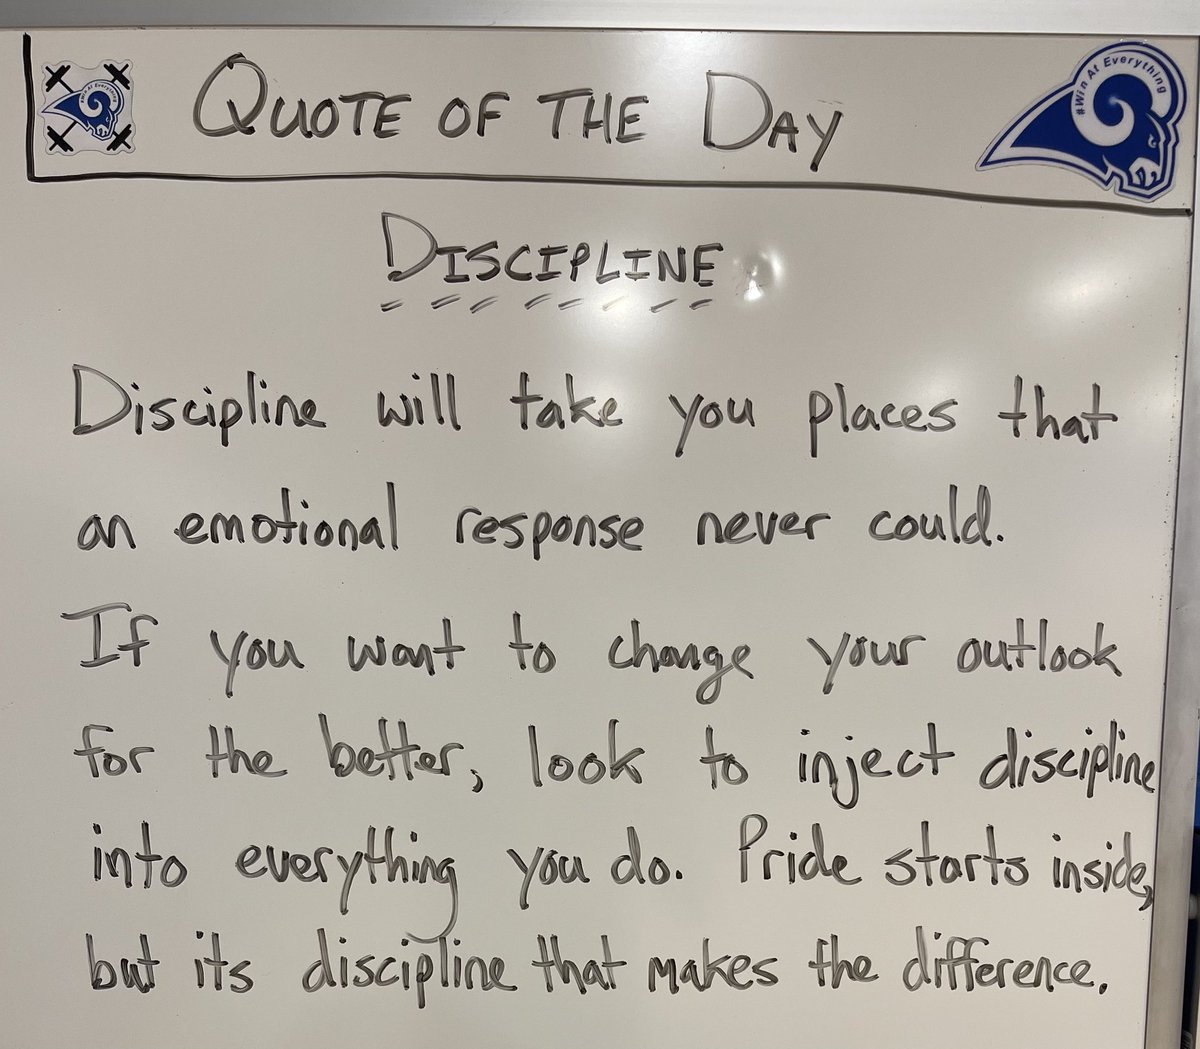 #Win At Everything
QUOTE OF THE DAY
#Win At Everything
DISCIPLINE
Discipline will take you places that
an emotional response never could.
If you want to change your outlook
for the better, look to inject discipline
into everything you do. Pride starts inside,
but its discipline that makes the difference.